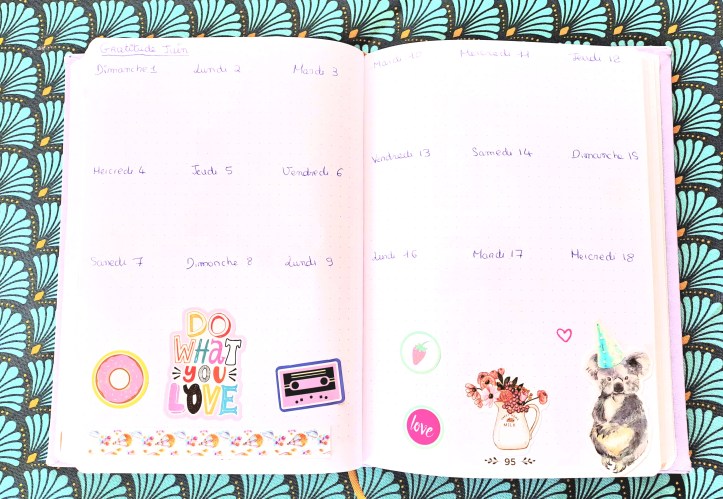 Gratitude Juin
Dimanche 1 Lundi 2 Mardi 3
Mercredi 4 Jeudi 5 Vendredi 6
Samedi 7 Dimanche 8 Lundi 9
DO
WHAT
YOU
LOVE
Mardi 10 Mercredi 11 Jeudi 12
Vendredi 13 Samedi 14 Dimanche 15
Lundi 16 Mardi 17 Mercredi 18
love
MILK
95